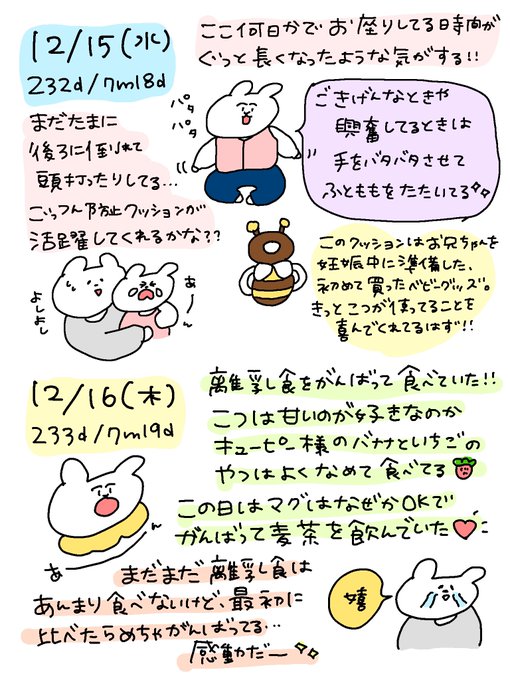 12/15(水)
232d/7m18d
ここ何日かでお座りしてる時間が
ぐっと長くなったような気がする!!
パタ
パタ
ごきげんなときや
興奮してるときは
手をバタバタさせて
ふとももをたたいてる
まだたまに
後ろに倒れて
頭打ったりしてる…
ごっつん防止クッションが
活躍してくれるかな??
このクッションはお兄ちゃんを
妊娠中に準備した、
初めて買ったベビーグッズ。
きっとこつが使ってることを
喜んでくれてるはず!!
よしよし
あーん
12/16(木)
233d/7m19d
離乳食をがんばって食べていた!!
こつは甘いのが好きなのか
キューピー様のバナナといちごの
やつはよくなめて食べてる
この日はマグはなぜかOKで
がんばって麦茶を飲んでいた
あーん
まだまだ離乳食は
あんまり食べないけど、最初に
比べたらめちゃがんばってる…
感動だー
嬉